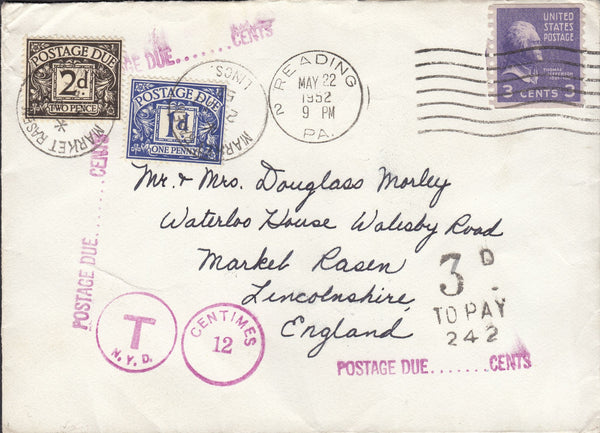 POSTAGE DUE
2d.
TWO PENCE
POSTAGE DUE.......CENTS
POSTAGE DUE
1d
ONE PENNY
MARKET RASEN
LINCS.
MARKET
READING
2
MAY 22
1952
9 PM
PA.
UNITED
STATES
POSTAGE
THOMAS
JEFFERSON
3 CENTS 3
Mr. & Mrs. Douglass Morley
Waterloo House Walesby Road
Market Rasen
Lincolnshire,
England
POSTAGE DUE.......CENTS
3D.
TO PAY
242
T
N.Y.D.
CENTIMES
12
POSTAGE DUE.......CENTS